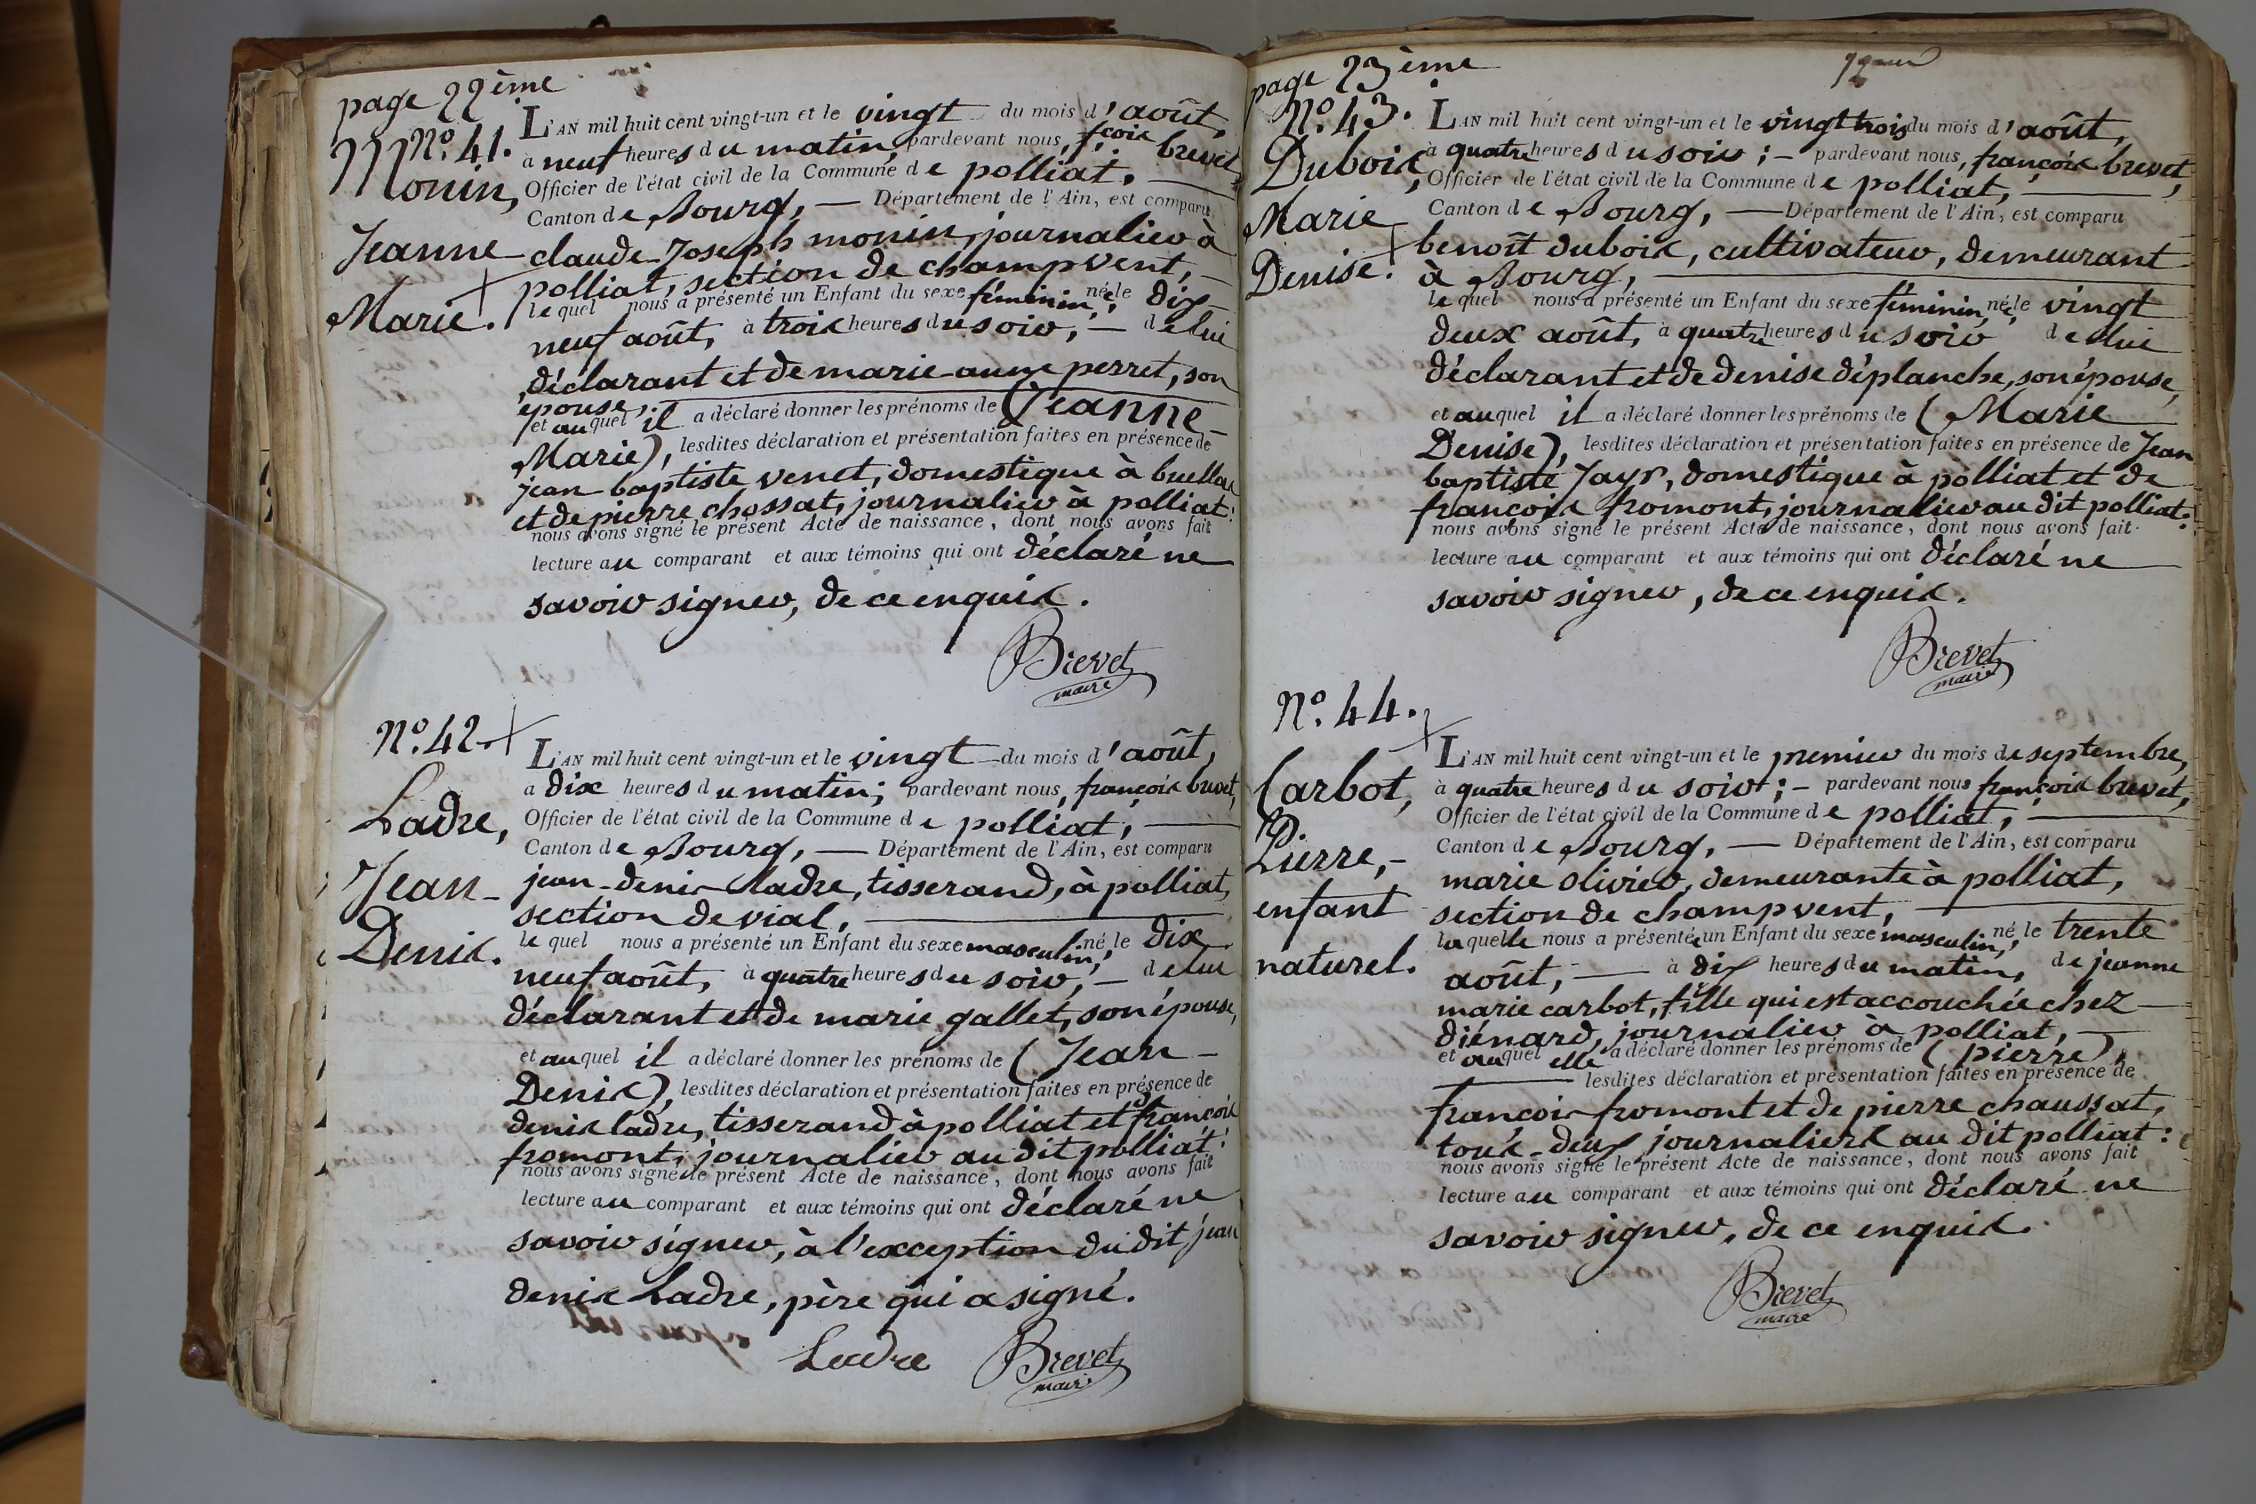 page 22ème
N.° 41.
Monin,
Jeanne
Marie.
L'AN mil huit cent vingt-un et le vingt du mois d'août,
à neuf heures du matin, pardevant nous, fçois brevet,
Officier de l'état civil de la Commune de polliat,
Canton de Bourg, — Département de l'Ain, est comparu
claude-Joseph monin, journalier à
polliat, section de champvent,
lequel nous a présenté un Enfant du sexe féminin, née le dix
neuf août, à trois heures du soir, — de lui
déclarant et de marie-anne perret, son
épouse,
et auquel il a déclaré donner les prénoms de (Jeanne-
Marie), lesdites déclaration et présentation faites en présence de
jean-baptiste venet, domestique à buellas
et de pierre chossat, journalier à polliat:
nous avons signé le présent Acte de naissance, dont nous avons fait
lecture au comparant et aux témoins qui ont déclaré ne
savoir signer, de ce enquis.
Brevet
maire
N.° 42.
Ladre,
Jean-
Denis.
L'AN mil huit cent vingt-un et le vingt du mois d'août,
à dix heures du matin; pardevant nous, françois brevet,
Officier de l'état civil de la Commune de polliat,
Canton de Bourg, — Département de l'Ain, est comparu
jean-denis ladre, tisserand, à polliat,
section de vial,
lequel nous a présenté un Enfant du sexe masculin, né le dix
neuf août, à quatre heures du soir, — de lui
déclarant et de marie gallet, son épouse,
et auquel il a déclaré donner les prénoms de (Jean-
Denis), lesdites déclaration et présentation faites en présence de
denis ladre, tisserand à polliat et françois
fromont, journalier au dit polliat:
nous avons signé le présent Acte de naissance, dont nous avons fait
lecture au comparant et aux témoins qui ont déclaré ne
savoir signer, à l'exception du dit jean
denis Ladre, père qui a signé.
Ladre Brevet
maire
page 23ème
N.° 43.
Dubois,
Marie
Denise.
L'AN mil huit cent vingt-un et le vingt trois du mois d'août,
à quatre heures du soir; — pardevant nous, françois brevet,
Officier de l'état civil de la Commune de polliat,
Canton de Bourg, — Département de l'Ain, est comparu
benoît dubois, cultivateur, demeurant
à Bourg,
lequel nous a présenté un Enfant du sexe féminin, née le vingt
deux août, à quatre heures du soir de lui
déclarant et de denise déplanche, son épouse,
et auquel il a déclaré donner les prénoms de (Marie
Denise), lesdites déclaration et présentation faites en présence de Jean
baptiste Jayr, domestique à polliat et de
françois fromont, journalier au dit polliat:
nous avons signé le présent Acte de naissance, dont nous avons fait
lecture au comparant et aux témoins qui ont déclaré ne
savoir signer, de ce enquis.
Brevet
maire
N.° 44.
Carbot,
Pierre,-
enfant
naturel.
L'AN mil huit cent vingt-un et le premier du mois de septembre,
à quatre heures du soir; — pardevant nous françois brevet,
Officier de l'état civil de la Commune de polliat,
Canton de Bourg, — Département de l'Ain, est comparu
marie olivier, demeurante à polliat,
section de champvent,
laquelle nous a présenté un Enfant du sexe masculin, né le trente
août, — à dix heures du matin, de jeanne
marie carbot, fille qui est accouchée chez
diénard, journalier à polliat,
et auquel elle a déclaré donner les prénoms de (pierre),
lesdites déclaration et présentation faites en présence de
françois fromont et de pierre chaussat,
tous-deux journaliers au dit polliat:
nous avons signé le présent Acte de naissance, dont nous avons fait
lecture au comparant et aux témoins qui ont déclaré ne
savoir signer, de ce enquis.
Brevet
maire